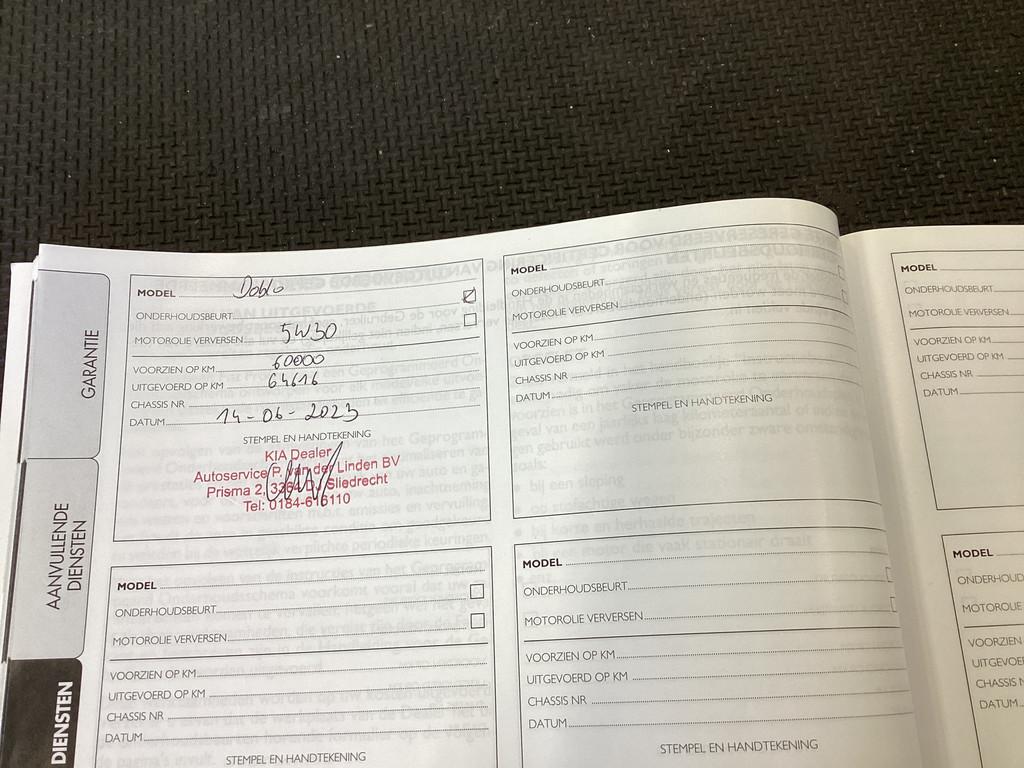 GARANTIE
AANVULLENDE
DIENSTEN
DIENSTEN
MODEL Doblo
ONDERHOUDSBEURT
MOTOROLIE VERVERSEN 5W30
VOORZIEN OP KM 60000
UITGEVOERD OP KM 64616
CHASSIS NR
DATUM 14-06-2023
STEMPEL EN HANDTEKENING
KIA Dealer
Autoservice P. van der Linden BV
Prisma 2, Sliedrecht
Tel: 0184-616110
MODEL
ONDERHOUDSBEURT
MOTOROLIE VERVERSEN
VOORZIEN OP KM
UITGEVOERD OP KM
CHASSIS NR
DATUM
STEMPEL EN HANDTEKENING
MODEL
ONDERHOUDSBEURT
MOTOROLIE VERVERSEN
VOORZIEN OP KM
UITGEVOERD OP KM
CHASSIS NR
DATUM
STEMPEL EN HANDTEKENING
MODEL
ONDERHOUDSBEURT
MOTOROLIE VERVERSEN
VOORZIEN OP KM
UITGEVOERD OP KM
CHASSIS NR
DATUM
STEMPEL EN HANDTEKENING
MODEL
ONDERHOUDSBEURT
MOTOROLIE VERVERSEN
VOORZIEN OP KM
UITGEVOERD OP KM
CHASSIS NR
DATUM
MODEL
ONDERHOUD
MOTOROLIE
VOORZIEN
UITGEVOE
CHASSIS N
DATUM